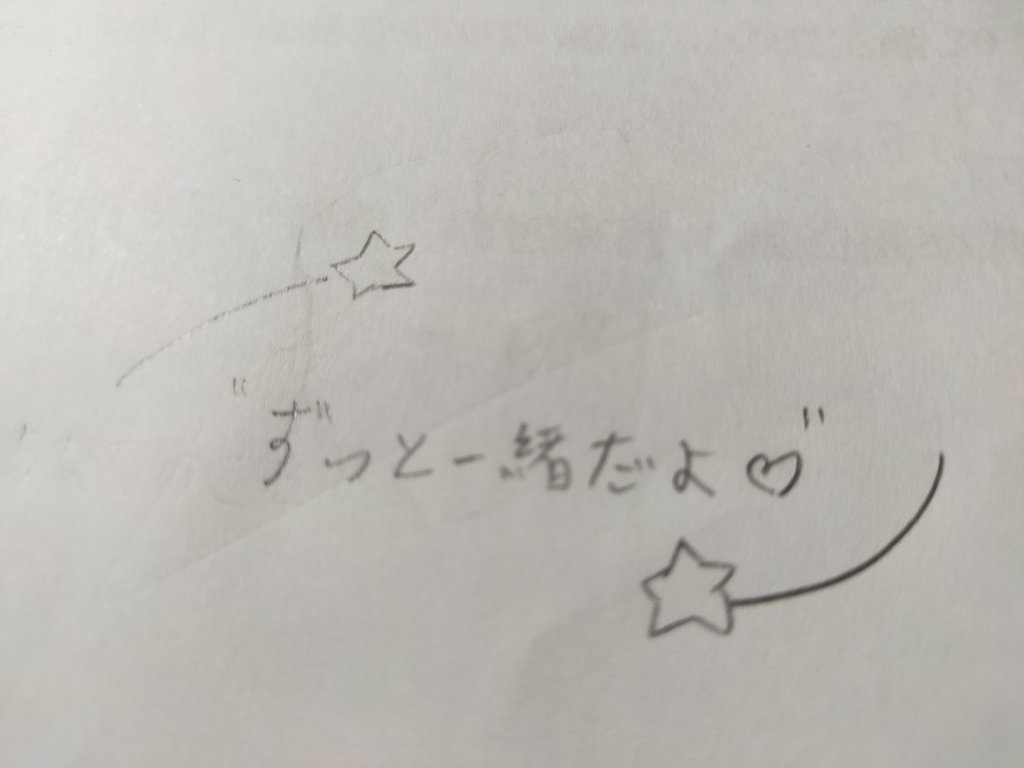 "ずっと一緒だよ♡"